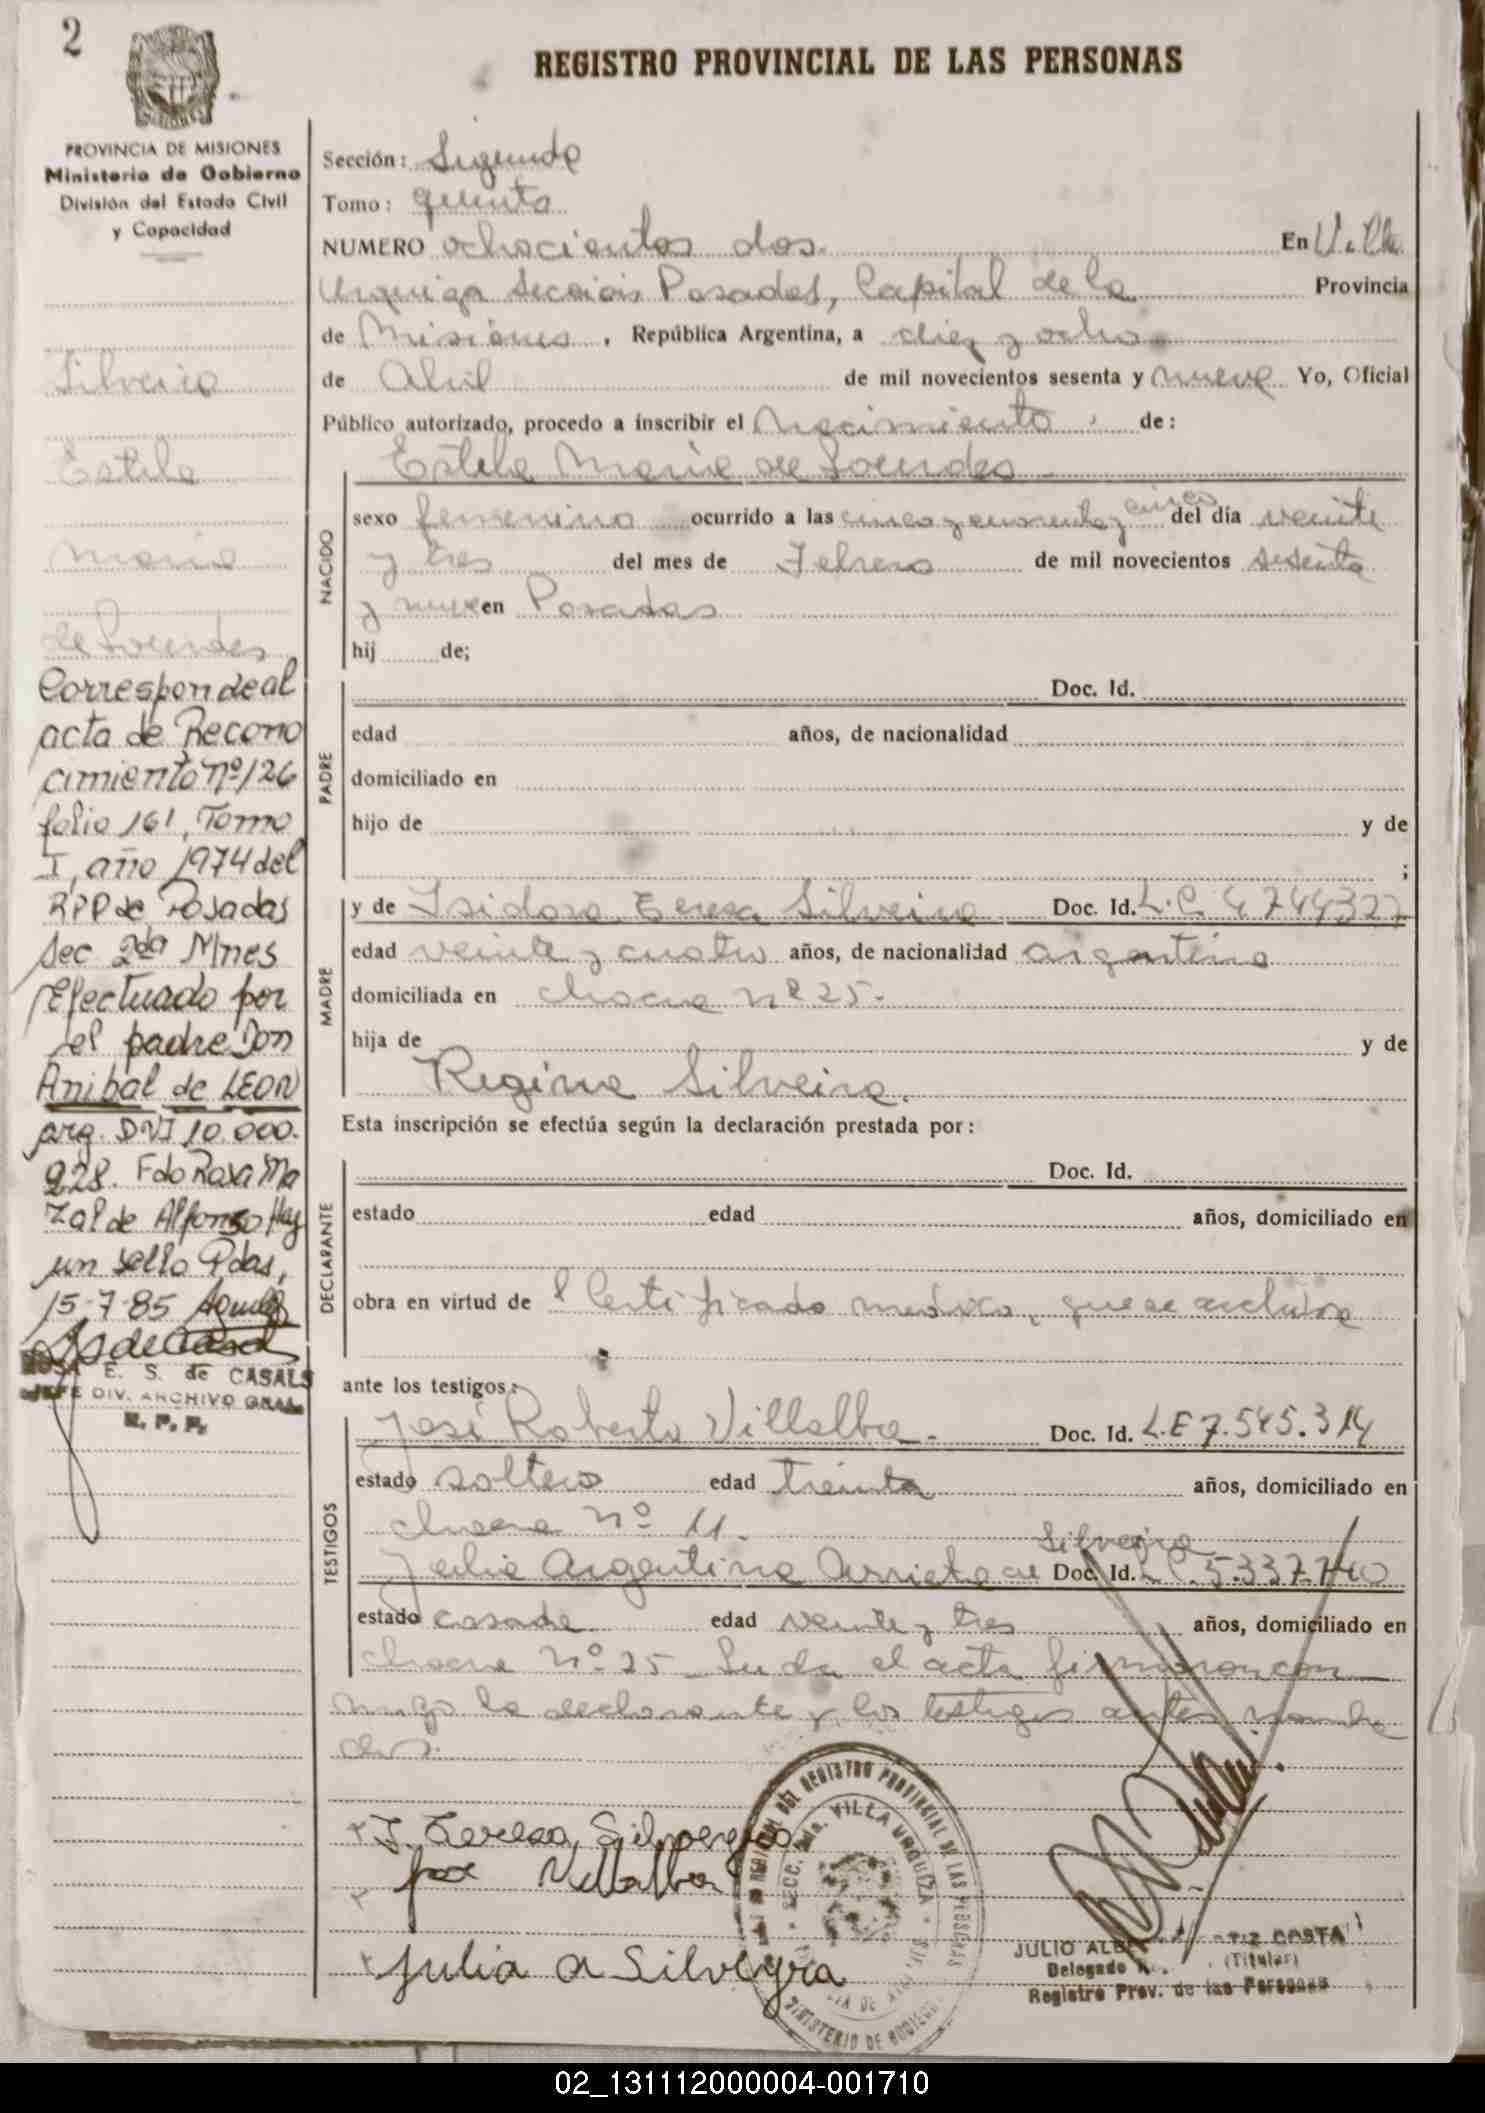 2
PROVINCIA DE MISIONES
Ministerio de Gobierno
División del Estado Civil
y Capacidad
Silveira
Estela
Maria
de Lourdes
Corresponde al
acta de Recono
cimiento nº 126
folio 161, Tomo
I, año 1974 del
RPP de Posadas
Sec 2da Mnes
efectuado por
el padre Don
Anibal de LEON
arg. DNI 10.000.
928. Fdo Rosa Ma
Zal de Alfonso Hay
un sello Pdas,
15-7-85
E. S. de CASALS
JEFE DIV. ARCHIVO GRAL
R. P. P.
REGISTRO PROVINCIAL DE LAS PERSONAS
Sección: Segunda
Tomo: quinto
NUMERO ochocientos dos. En Villa
Urquiza Sección Posadas, Capital de la Provincia
de Misiones, República Argentina, a diez y ocho
de Abril de mil novecientos sesenta y nueve Yo, Oficial
Público autorizado, procedo a inscribir el Nacimiento de:
Estela Maria de Lourdes
NACIDO
sexo femenino ocurrido a las cinco y cuarenta y cinco del día veinte
y tres del mes de Febrero de mil novecientos sesenta
y nueve en Posadas
hij de;
PADRE
Doc. Id.
edad años, de nacionalidad
domiciliado en
hijo de y de
;
MADRE
y de Isidora Teresa Silveira Doc. Id. L.C. 4744327
edad veinte y cuatro años, de nacionalidad argentina
domiciliada en chacra nº 25.
hija de y de
Regina Silveira.
Esta inscripción se efectúa según la declaración prestada por:
DECLARANTE
Doc. Id.
estado edad años, domiciliado en
obra en virtud de l Certificado medico, que se archiva
ante los testigos:
TESTIGOS
José Roberto Villalba. Doc. Id. L.E 7.545.314
estado soltero edad treinta años, domiciliado en
chacra Nº 11.
Silveira
Julia Argentina Arrieta de Doc. Id. L.C. 5.337.740
estado casada edad veinte y tres años, domiciliado en
chacra Nº 25 Leida el acta firmaron con
migo la declarante y los testigos antes nombra
dos.
I. Teresa Silveyra
José Villalba
Julia A Silveyra
REGISTRO PROVINCIAL DE LAS PERSONAS
SECC. 2da. VILLA URQUIZA
MINISTERIO DE GOBIERNO
JULIO ALB COSTA
(Titular)
Delegado
Registro Prov. de las Personas
02_131112000004-001710